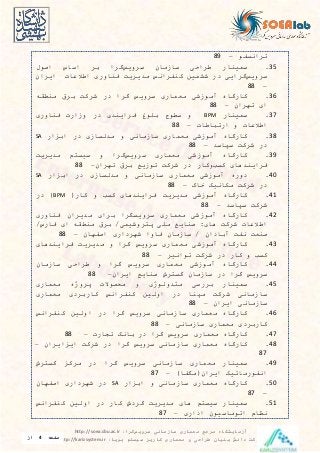 SOEAlab
ترانسفو - 89
35. سمینار طراحی سازمان سرویس‌گرا بر اساس اصول
سرویس‌گرایی در ششمین کنفرانس مدیریت فناوری اطلاعات ایران
- 88
36. کارگاه آموزشی معماری سرویس گرا در شرکت برق منطقه
ای تهران - 88
37. سمینار BPM و سطوح بلوغ فرایندی در وزارت فناوری
اطلاعات و ارتباطات - 88
38. کارگاه آموزشی معماری سازمانی و مدلسازی در ابزار SA
در شرکت سپاسد - 88
39. کارگاه آموزشی معماری سرویس‌گرا و سیستم مدیریت
فرایندهای کسب‌وکار در شرکت توزیع برق تهران- 88
40. دوره آموزشی معماری سازمانی و مدلسازی در ابزار SA
در شرکت مکانیک خاک - 88
41. کارگاه آموزشی مدیریت فرایندهای کسب و کار (BPM) در
شرکت سپاسد - 88
42. کارگاه آموزشی معماری سرویسگرا برای مدیران فناوری
اطلاعات شرکت های: صنایع ملی پتروشیمی/ برق منطقه ای فارس/
صنعت نفت آبادان / سازمان فاوا شهرداری اصفهان - 88
43. کارگاه آموزشی معماری سرویس گرا و مدیریت فرایندهای
کسب و کار در شرکت توانیر - 88
44. کارگاه آموزشی معماری سرویس گرا و طراحی سازمان
سرویس گرا در سازمان گسترش صنایع ایران- 88
45. سمینار بررسی متدولوژی و محصولات پروژه معماری
سازمانی شرکت مپنا در اولین کنفرانس کاربردی معماری
سازمانی ایران - 88
46. کارگاه معماری سازمانی سرویس گرا در اولین کنفرانس
کاربردی معماری سازمانی - 88
47. کارگاه معماری سرویس گرا در بانک تجارت - 88
48. کارگاه معماری سازمانی سرویس گرا در شرکت ایزایران -
87
49. سمینار معماری سازمانی سرویس گرا در مرکز گسترش
انفورماتیک ایران (مگفا) - 87
50. کارگاه معماری سازمانی و ابزار SA در شهرداری اصفهان
- 87
51. سمینار سیستم های مدیریت گردش کار در اولین کنفرانس
نظام اتوماسیون اداری - 87
آزمایشگاه مرجع معماری سازمانی سرویس‌گرا: http://soea.sbu.ac.ir
صفحه 4 از